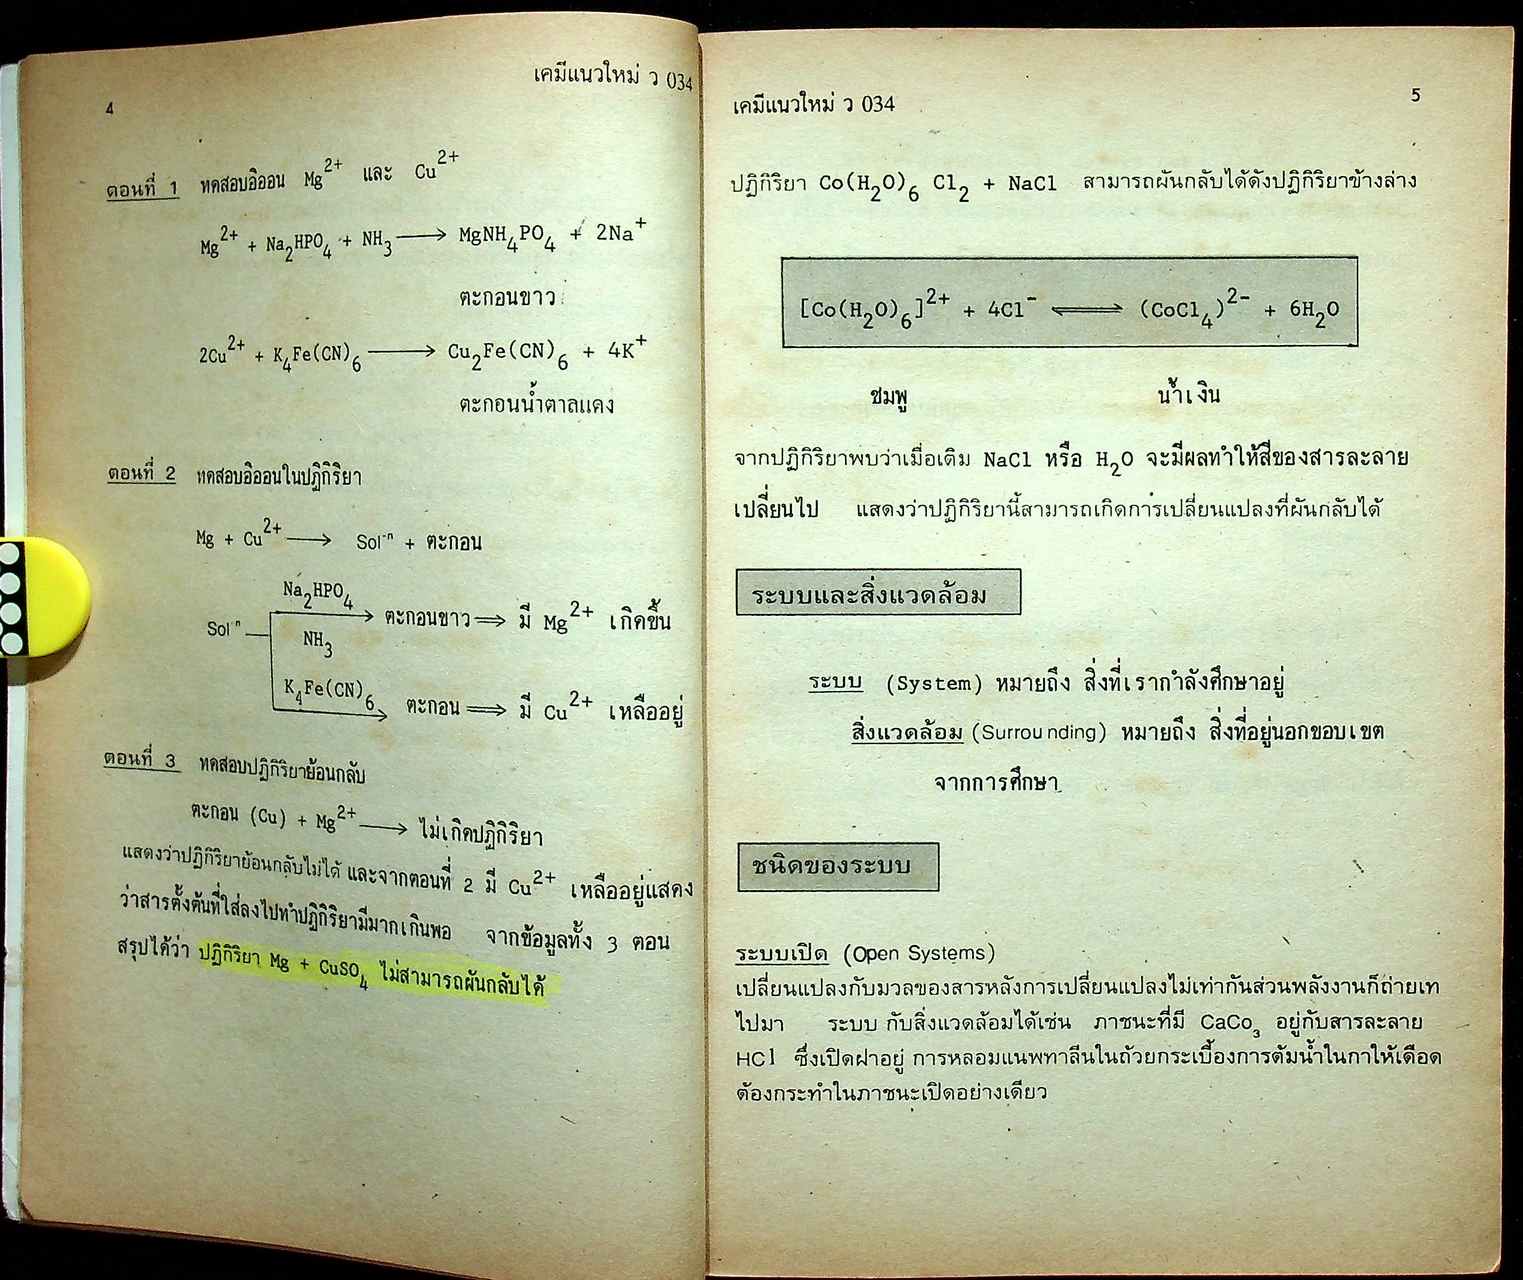 เคมีแนวใหม่ ว 034
4
ตอนที่ 1 ทดสอบอิออน Mg²⁺ และ Cu²⁺
Mg²⁺ + Na₂HPO₄ + NH₃ ⟶ MgNH₄PO₄ + 2Na⁺
ตะกอนขาว
2Cu²⁺ + K₄Fe(CN)₆ ⟶ Cu₂Fe(CN)₆ + 4K⁺
ตะกอนน้ำตาลแดง
ตอนที่ 2 ทดสอบอิออนในปฏิกิริยา
Mg + Cu²⁺ ⟶ Sol⁻ⁿ + ตะกอน
Na₂HPO₄
Sol⁻ⁿ ตะกอนขาว ⟹ มี Mg²⁺ เกิดขึ้น
NH₃
K₄Fe(CN)₆
ตะกอน ⟹ มี Cu²⁺ เหลืออยู่
ตอนที่ 3 ทดสอบปฏิกิริยาย้อนกลับ
ตะกอน (Cu) + Mg²⁺ ⟶ ไม่เกิดปฏิกิริยา
แสดงว่าปฏิกิริยาย้อนกลับไม่ได้ และจากตอนที่ 2 มี Cu²⁺ เหลืออยู่แสดง
ว่าสารตั้งต้นที่ใส่ลงไปทำปฏิกิริยามีมากเกินพอ จากข้อมูลทั้ง 3 ตอน
สรุปได้ว่า ปฏิกิริยา Mg + CuSO₄ ไม่สามารถผันกลับได้
เคมีแนวใหม่ ว 034
5
ปฏิกิริยา Co(H₂O)₆ Cl₂ + NaCl สามารถผันกลับได้ดังปฏิกิริยาข้างล่าง
[Co(H₂O)₆]²⁺ + 4Cl⁻ ⇌ (CoCl₄)²⁻ + 6H₂O
ชมพู น้ำเงิน
จากปฏิกิริยาพบว่าเมื่อเติม NaCl หรือ H₂O จะมีผลทำให้สีของสารละลาย
เปลี่ยนไป แสดงว่าปฏิกิริยานี้สามารถเกิดการเปลี่ยนแปลงที่ผันกลับได้
ระบบและสิ่งแวดล้อม
ระบบ (System) หมายถึง สิ่งที่เรากำลังศึกษาอยู่
สิ่งแวดล้อม (Surrounding) หมายถึง สิ่งที่อยู่นอกขอบเขต
จากการศึกษา
ชนิดของระบบ
ระบบเปิด (Open Systems)
เปลี่ยนแปลงกับมวลของสารหลังการเปลี่ยนแปลงไม่เท่ากันส่วนพลังงานก็ถ่ายเท
ไปมา ระบบ กับสิ่งแวดล้อมได้เช่น ภาชนะที่มี CaCo₃ อยู่กับสารละลาย
HCl ซึ่งเปิดฝาอยู่ การหลอมแนพทาลีนในถ้วยกระเบื้องการต้มน้ำในกาให้เดือด
ต้องกระทำในภาชนะเปิดอย่างเดียว